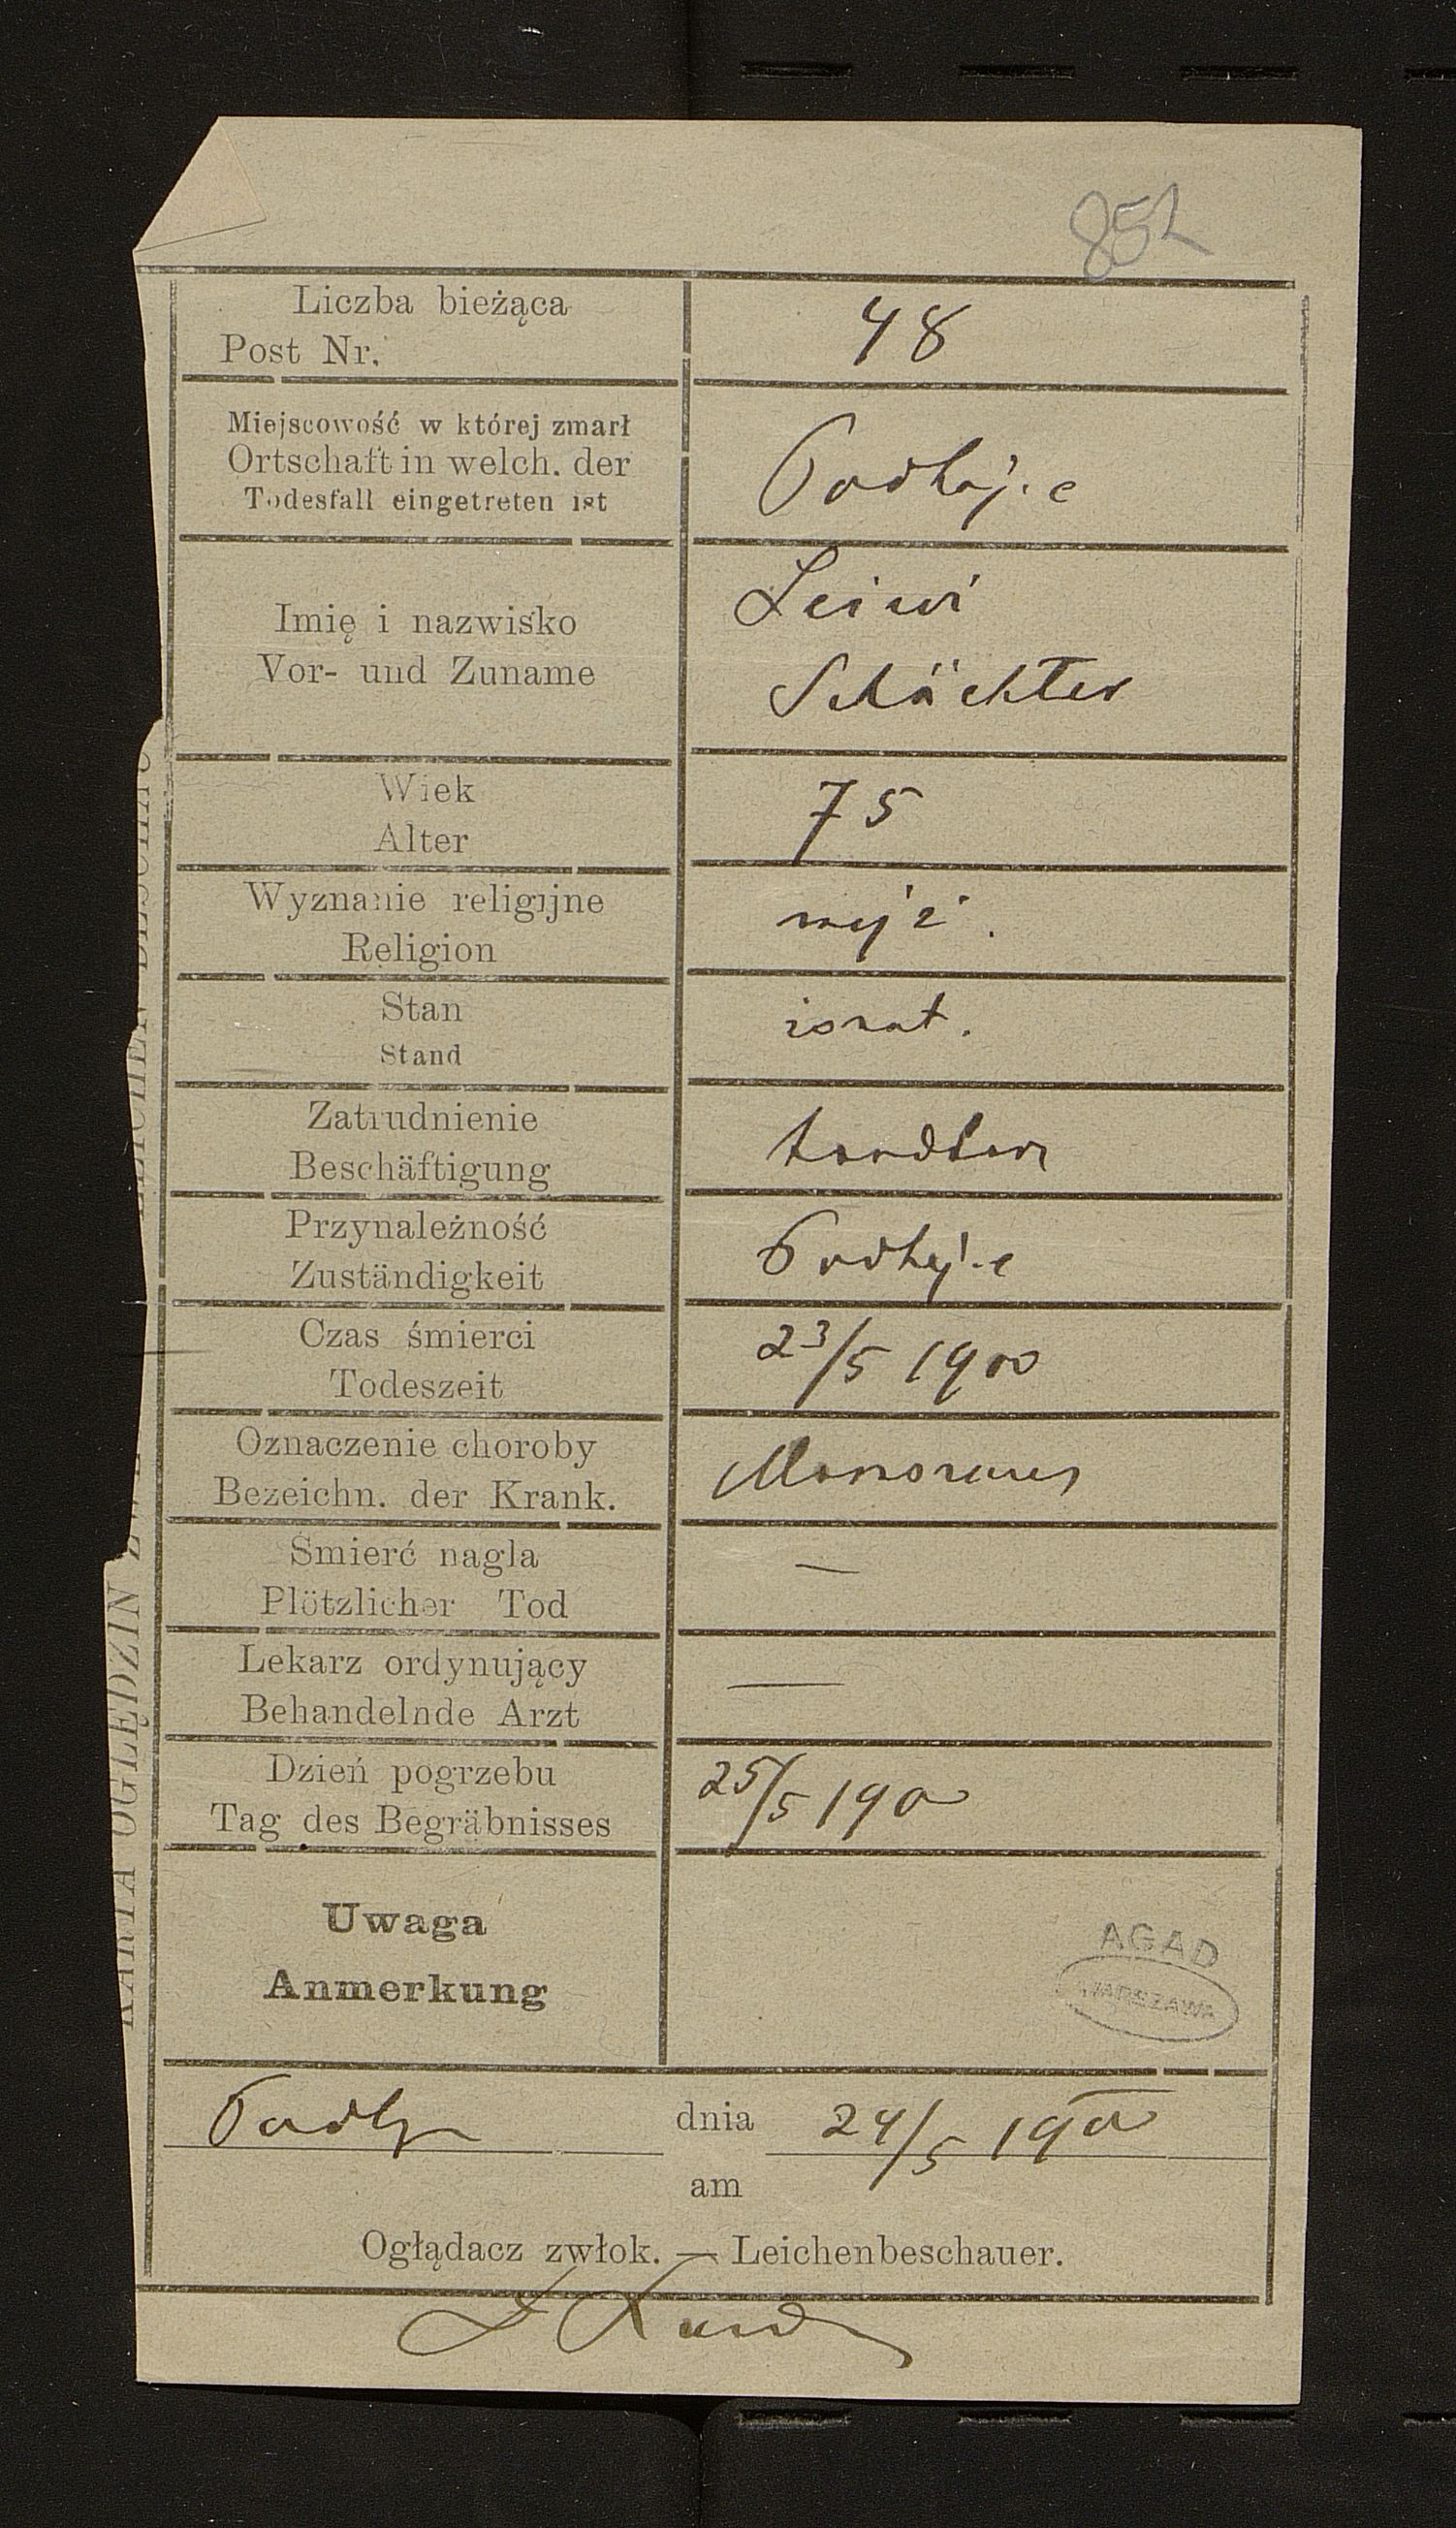 852
Liczba bieżąca
Post Nr.
48
Miejscowość w której zmarł
Ortschaft in welch. der
Todesfall eingetreten ist
Podhajce
Imię i nazwisko
Vor- und Zuname
Leiwi
Schächter
Wiek
Alter
75
Wyznanie religijne
Religion
Stan
Stand
Zatrudnienie
Beschäftigung
Przynależność
Zuständigkeit
Podhajce
Czas śmierci
Todeszeit
23/5 1900
Oznaczenie choroby
Bezeichn. der Krank.
Śmierć nagla
Plötzlicher Tod
—
Lekarz ordynujący
Behandelnde Arzt
—
Dzień pogrzebu
Tag des Begräbnisses
25/5 190
Uwaga
Anmerkung
AGAD
WARSZAWA
dnia 24/5 190
am
Oglądacz zwłok. — Leichenbeschauer.
KARTA OGLĘDZIN